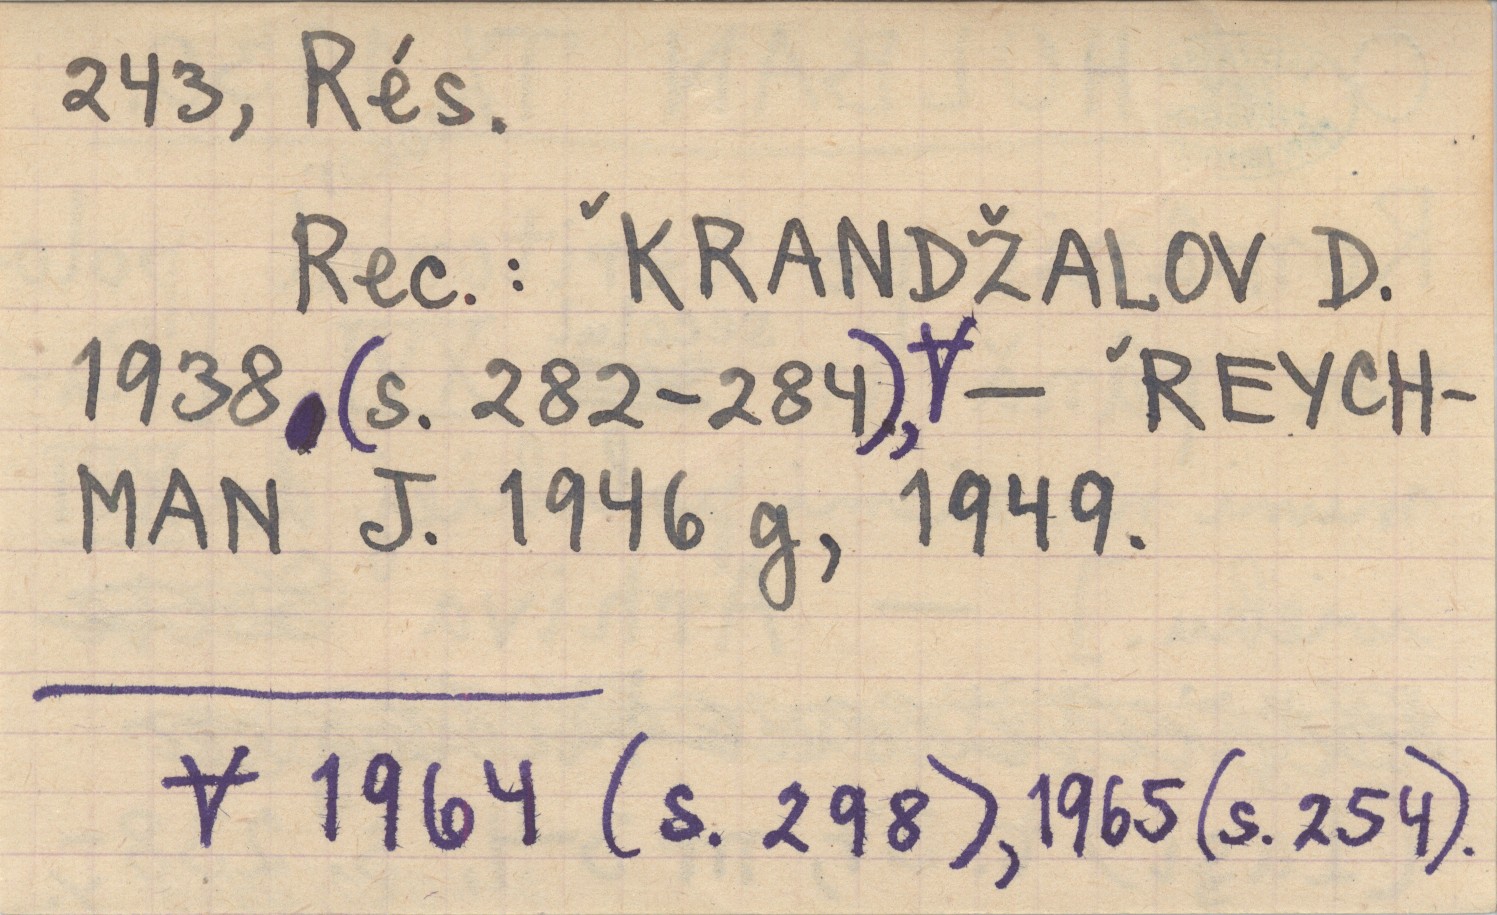 243, Rés.
Rec.: ˇKRANDŽALOV D.
1938. (s. 282-284), ∀ — ˇREYCH-
MAN J. 1946 g, 1949.
∀ 1964 (s. 298), 1965 (s. 254).